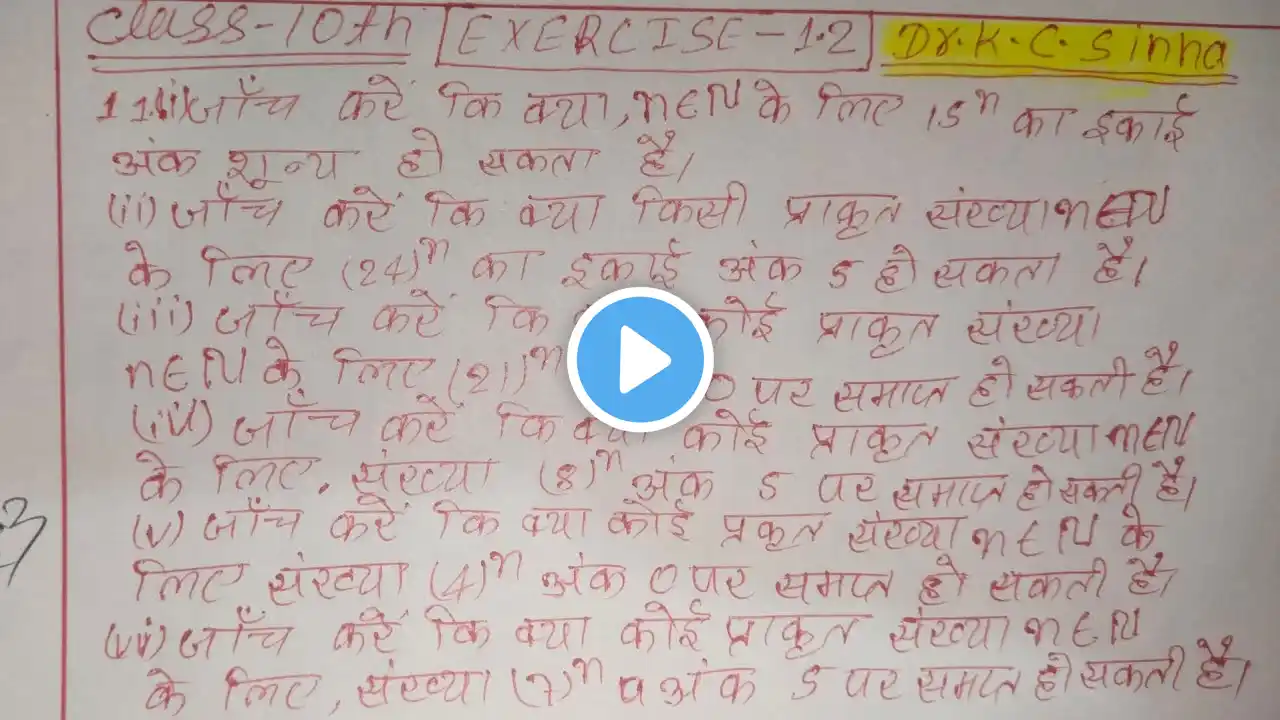 Class-10th EXERCISE-1.2 Dr.K.C.Sinha
11.(i) जाँच करें कि क्या, n∈N के लिए 15ⁿ का इकाई
अंक शून्य हो सकता है।
(ii) जाँच करें कि क्या किसी प्राकृत संख्या n∈N
के लिए (24)ⁿ का इकाई अंक 5 हो सकता है।
(iii) जाँच करें कि कोई प्राकृत संख्या
n∈N के लिए (21)ⁿ 0 पर समाप्त हो सकती है।
(iv) जाँच करें कि क्या कोई प्राकृत संख्या n∈N
के लिए, संख्या (8)ⁿ अंक 5 पर समाप्त हो सकती है।
(v) जाँच करें कि क्या कोई प्रकृत संख्या n∈N के
लिए संख्या (4)ⁿ अंक 0 पर समाप्त हो सकती है।
(vi) जाँच करें कि क्या कोई प्राकृत संख्या n∈N
के लिए, संख्या (7)ⁿ अंक 5 पर समाप्त हो सकती है।